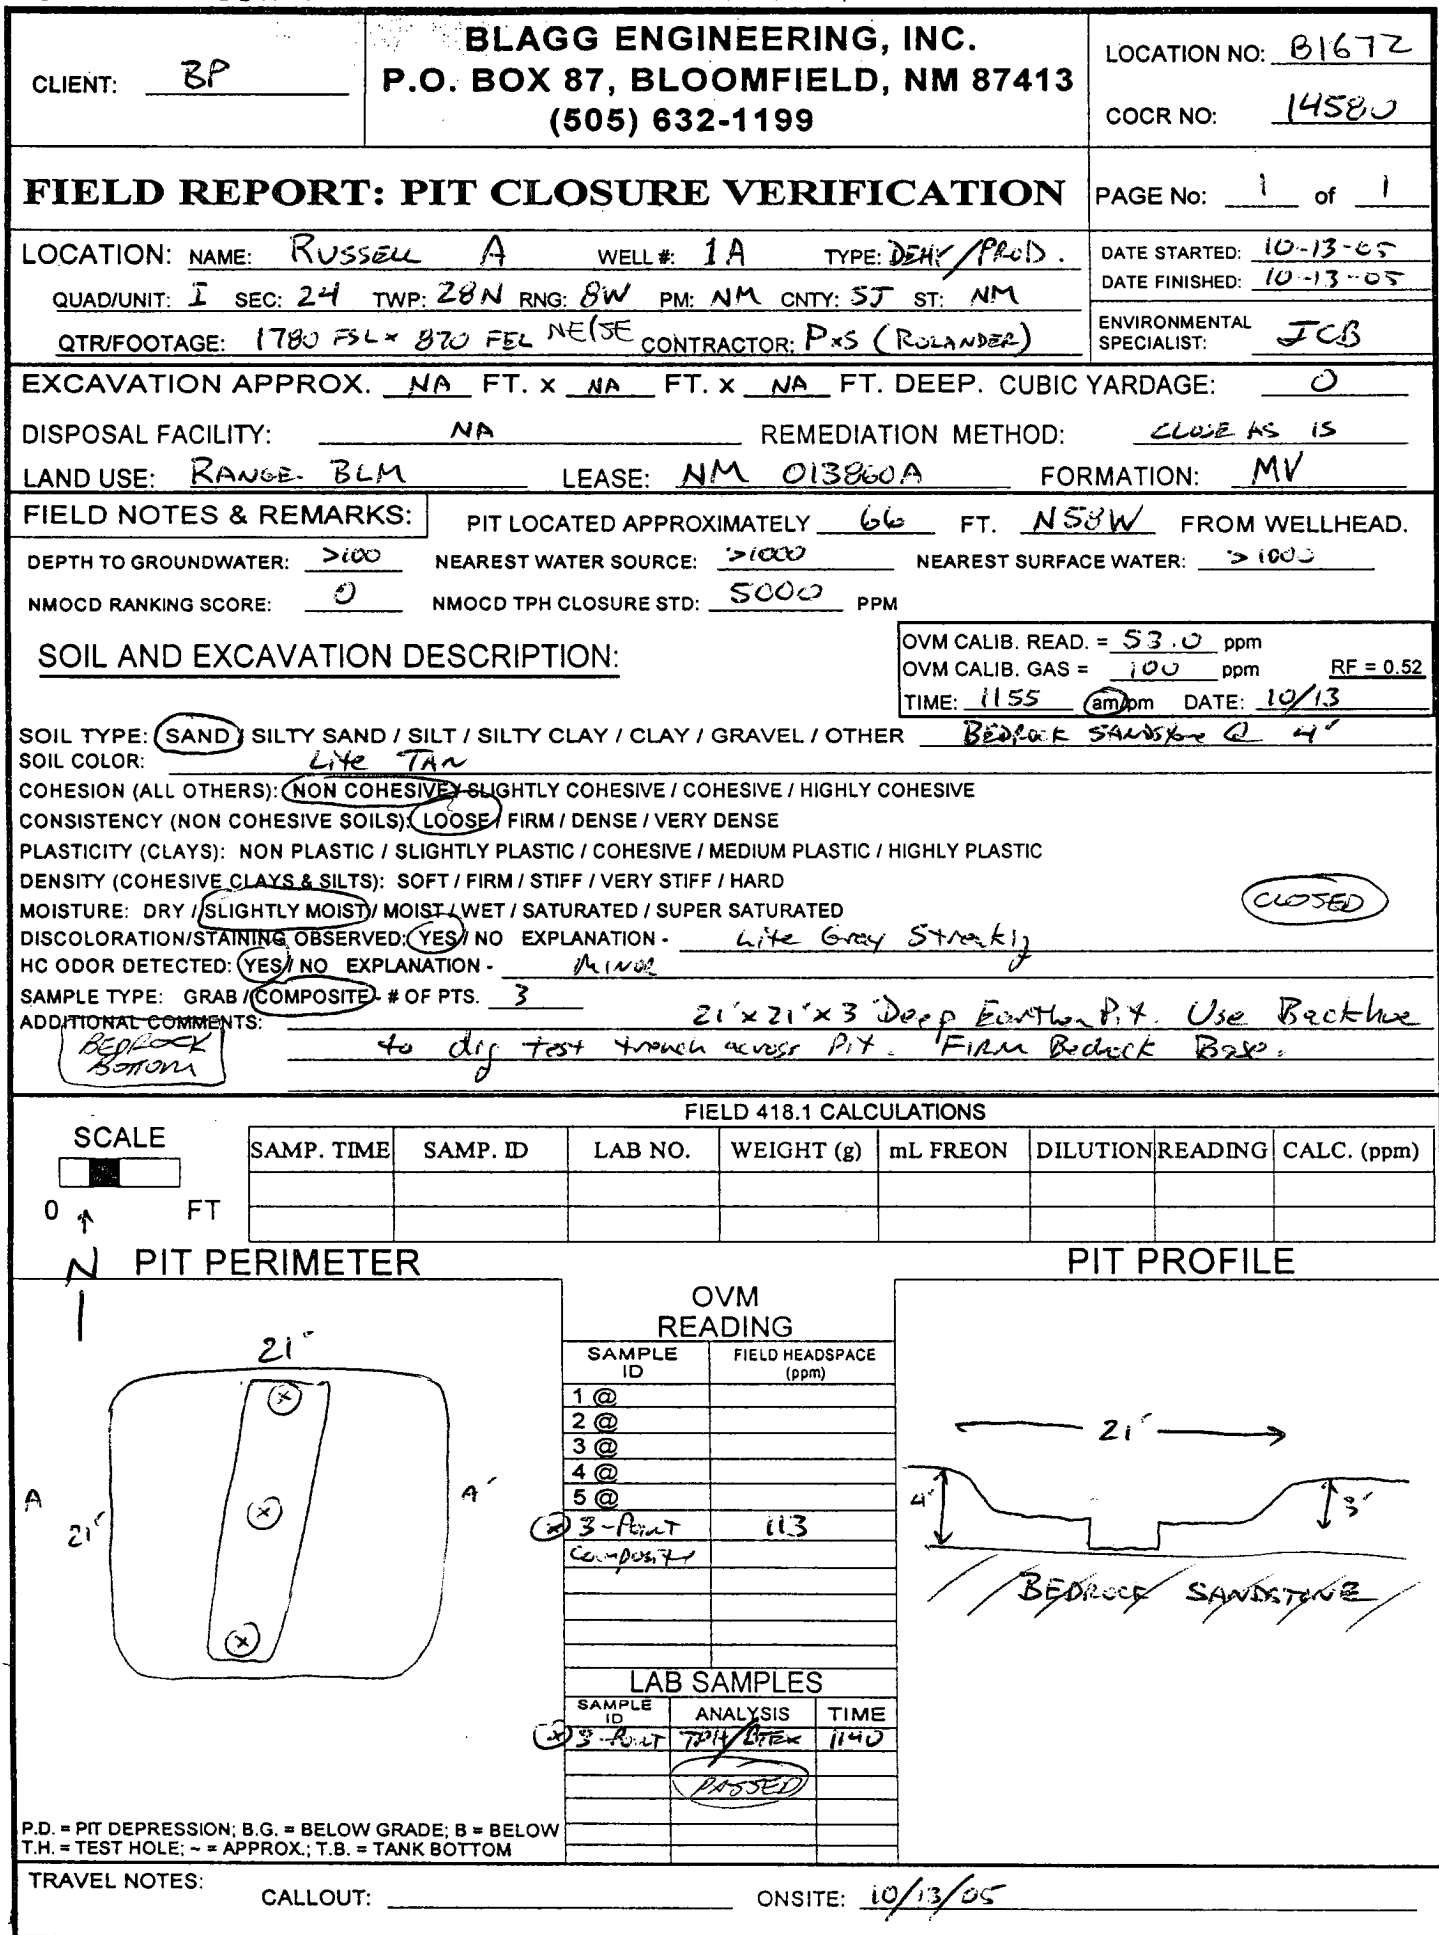 BLAGG ENGINEERING, INC.
P.O. BOX 87, BLOOMFIELD, NM 87413
(505) 632-1199
CLIENT: BP
LOCATION NO: B1672
COCR NO: 14580
FIELD REPORT: PIT CLOSURE VERIFICATION
PAGE No: 1 of 1
LOCATION: NAME: RUSSELL A WELL #: 1A TYPE: DEHY/PROD.
QUAD/UNIT: I SEC: 24 TWP: 28N RNG: 8W PM: NM CNTY: SJ ST: NM
QTR/FOOTAGE: 1780 FSL x 870 FEL NE/SE CONTRACTOR: P×S (ROLANDER)
DATE STARTED: 10-13-05
DATE FINISHED: 10-13-05
ENVIRONMENTAL
SPECIALIST: JCB
EXCAVATION APPROX. NA FT. x NA FT. x NA FT. DEEP. CUBIC YARDAGE: 0
DISPOSAL FACILITY: NA REMEDIATION METHOD: CLOSE AS IS
LAND USE: RANGE- BLM LEASE: NM 013860A FORMATION: MV
FIELD NOTES & REMARKS: PIT LOCATED APPROXIMATELY 66 FT. N58W FROM WELLHEAD.
DEPTH TO GROUNDWATER: >100 NEAREST WATER SOURCE: >1000 NEAREST SURFACE WATER: >1000
NMOCD RANKING SCORE: 0 NMOCD TPH CLOSURE STD: 5000 PPM
SOIL AND EXCAVATION DESCRIPTION:
OVM CALIB. READ. = 53.0 ppm
OVM CALIB. GAS = 100 ppm RF = 0.52
TIME: 1155 am/pm DATE: 10/13
SOIL TYPE: SAND / SILTY SAND / SILT / SILTY CLAY / CLAY / GRAVEL / OTHER BEDROCK SANDSTONE @ 4'
SOIL COLOR: Lite TAN
COHESION (ALL OTHERS): NON COHESIVE / SLIGHTLY COHESIVE / COHESIVE / HIGHLY COHESIVE
CONSISTENCY (NON COHESIVE SOILS): LOOSE / FIRM / DENSE / VERY DENSE
PLASTICITY (CLAYS): NON PLASTIC / SLIGHTLY PLASTIC / COHESIVE / MEDIUM PLASTIC / HIGHLY PLASTIC
DENSITY (COHESIVE CLAYS & SILTS): SOFT / FIRM / STIFF / VERY STIFF / HARD
MOISTURE: DRY / SLIGHTLY MOIST / MOIST / WET / SATURATED / SUPER SATURATED
CLOSED
DISCOLORATION/STAINING OBSERVED: YES / NO EXPLANATION - Lite Gray Streaking
HC ODOR DETECTED: YES / NO EXPLANATION - MINOR
SAMPLE TYPE: GRAB / COMPOSITE - # OF PTS. 3
ADDITIONAL COMMENTS: 21'x21'x3' Deep Earthen Pit. Use Backhoe
to dig test trench across Pit. FIRM Bedrock Base.
BEDROCK
BOTTOM
FIELD 418.1 CALCULATIONS
SCALE
0 FT
SAMP. TIME SAMP. ID LAB NO. WEIGHT (g) mL FREON DILUTION READING CALC. (ppm)
N
PIT PERIMETER
PIT PROFILE
21'
A
21'
A'
OVM
READING
SAMPLE ID FIELD HEADSPACE (ppm)
1 @
2 @
3 @
4 @
5 @
3-Point 113
Composite
21'
4'
3'
BEDROCK SANDSTONE
LAB SAMPLES
SAMPLE ID ANALYSIS TIME
3-Point TPH/BTEX 1140
PASSED
P.D. = PIT DEPRESSION; B.G. = BELOW GRADE; B = BELOW
T.H. = TEST HOLE; ~ = APPROX.; T.B. = TANK BOTTOM
TRAVEL NOTES:
CALLOUT: ONSITE: 10/13/05